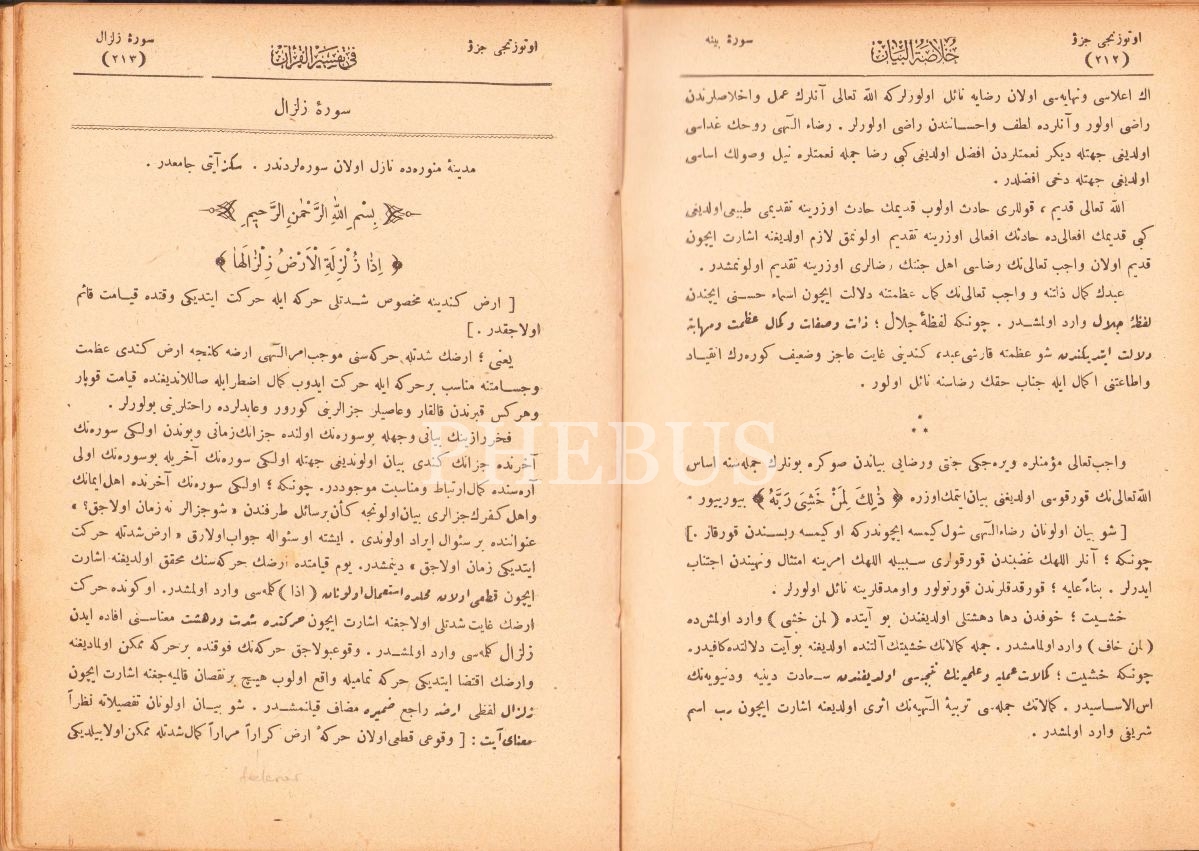 اوتوزنجى جزؤ
(٢١٢)
خلاصة البيان
سورۀ بينه
اك اعلاسى ونهايه‌سى اولان رضايه نائل اولورلركه الله تعالى آنلرك عمل واخلاصلرندن
راضى اولور وآنلرده لطف واحسانندن راضى اولورلر . رضاء الٓهى روحك غداسى
اولديغى جهتله ديكر نعمتلردن افضل اولديغى كبى رضا جمله نعمتلره نيل وصولك اساسى
اولديغى جهتله دخى افضلدر .
الله تعالى قديم ، قوللرى حادث اولوب قديمك حادث اوزرينه تقديمى طبيعى اولديغى
كبى قديمك افعالى‌ده حادثك افعالى اوزرينه تقديم اولونمق لازم اولديغنه اشارت ايچون
قديم اولان واجب تعالى‌نك رضاسى اهل جنتك رضالرى اوزرينه تقديم اولونمشدر .
عبدك كمال ذلتنه و واجب تعالى‌نك كمال عظمتنه دلالت ايچون اسماء حسنى ايچندن
لفظۀ جلال وارد اولمشدر . چونكه لفظۀ جلال ؛ ذات وصفات وكمال عظمت ومهابة
دلالت ايتديكندن شو عظمته قارشى عبد، كندينى غايت عاجز وضعيف كوره‌رك انقياد
واطاعتنى اكمال ايله جناب حقك رضاسنه نائل اولور .
***
واجب‌تعالى مؤمنلره ويره‌جكى جنتى ورضايى بياندن صوكره بونلرك جمله‌سنه اساس
الله‌تعالى‌نك قورقوسى اولديغنى بيان‌ايتمك‌اوزره ﴿ ذٰلِكَ لِمَنْ خَشِىَ رَبَّهُ ﴾ بيورييور .
[ شو بيان اولونان رضاءالٓهى شول كيمسه ايچوندركه اوكيمسه ربسندن قورقار . ]
چونكه ؛ آنلر اللهك غضبندن قورقولرى سببيله اللهك امرينه امتثال ونهيندن اجتناب
ايدرلر . بناءً عليه ؛ قورقدقلرندن قورتولور واومدقلرينه نائل اولورلر .
خشيت ؛ خوفدن دها دهشتلى اولديغندن بو آيتده ( لمن خشى ) وارد اولمش‌ده
( لمن خاف ) وارد اولمامشدر . جمله كمالاتك خشيتك آلتنده اولديغنه بوآيت دلالتده كافيدر.
چونكه خشيت ؛ كمالات عمليه وعلميه‌نك نتيجه‌سى اولديغندن سعادت دينيه ودنيويه‌نك
اس‌الاساسيدر . كمالاتك جمله‌سى تربيۀ الٓهيه‌نك اثرى اولديغنه اشارت ايچون رب اسم
شريفى وارد اولمشدر .
اوتوزنجى جزؤ
فى تفسير القرآن
سورۀ زلزال
(٢١٣)
سورۀ زلزال
مدينۀ منوره‌ده نازل اولان سوره‌لردندر . سكز آيتى جامعدر .
بِسْمِ اللهِ الرَّحْمٰنِ الرَّحِيمِ
﴿ اِذَا زُلْزِلَةِ الْاَرْضُ زِلْزَالَهَا ﴾
[ ارض كندينه مخصوص شدتلى حركه ايله حركت ايتديكى وقتده قيامت قائم
اولاجقدر . ]
يعنى ؛ ارضك شدتله حركه‌سنى موجب‌امرالٓهى ارضه كلنجه ارض كندى عظمت
وجسامتنه مناسب برحركه ايله حركت ايدوب كمال اضطرابله صاللانديغنده قيامت قوپار
وهركس قبرندن قالقار وعاصيلر جزالرينى كورور وعابدلرده راحتلرينى بولورلر .
فخررازينك بيانى وجهله بوسوره‌نك اولنده جزانك‌زمانى وبوندن اولكى سوره‌نك
آخرنده جزانك كندى بيان اولونديغى جهتله اولكى سوره‌نك آخريله بوسوره‌نك اولى
آره‌سنده كمال‌ارتباط ومناسبت موجوددر. چونكه ؛ اولكى سوره‌نك آخرنده اهل‌ايمانك
واهل كفرك‌جزالرى بيان‌اولونجه كأن‌برسائل طرفندن « شوجزالر نه زمان اولاجق؟ »
عنواننده برسئوال ايراد اولوندى . ايشته اوسئواله جواب‌اولارق « ارض‌شدتله حركت
ايتديكى زمان اولاجق » دينمشدر. يوم قيامتده ارضك حركه‌سنك محقق اولديغنه‌اشارت
ايچون قطعى‌اولان محلده‌استعمال‌اولونان ( اذا ) كله‌سى وارد اولمشدر. اوكونده حركت
ارضك غايت شدتلى اولاجغنه اشارت ايچون حركتده شدت ودهشت معناسنى افاده ايدن
زلزال كله‌سى وارد اولمشدر . وقوعبولاجق حركه‌نك فوقنده برحركه ممكن اولماديغنه
وارضك اقتضا ايتديكى حركه تماميله واقع اولوب هيچ برنقصان قالميه‌جغنه اشارت ايچون
زلزال لفظى ارضه راجع ضميره مضاف قيلنمشدر . شو بيان اولونان تفصيلاته نظراً
معناى‌آيت : [ وقوعى قطعى‌اولان حركۀ ارض كراراً مراراً كمال‌شدتله ممكن‌اولابيلديكى
PHEBUS